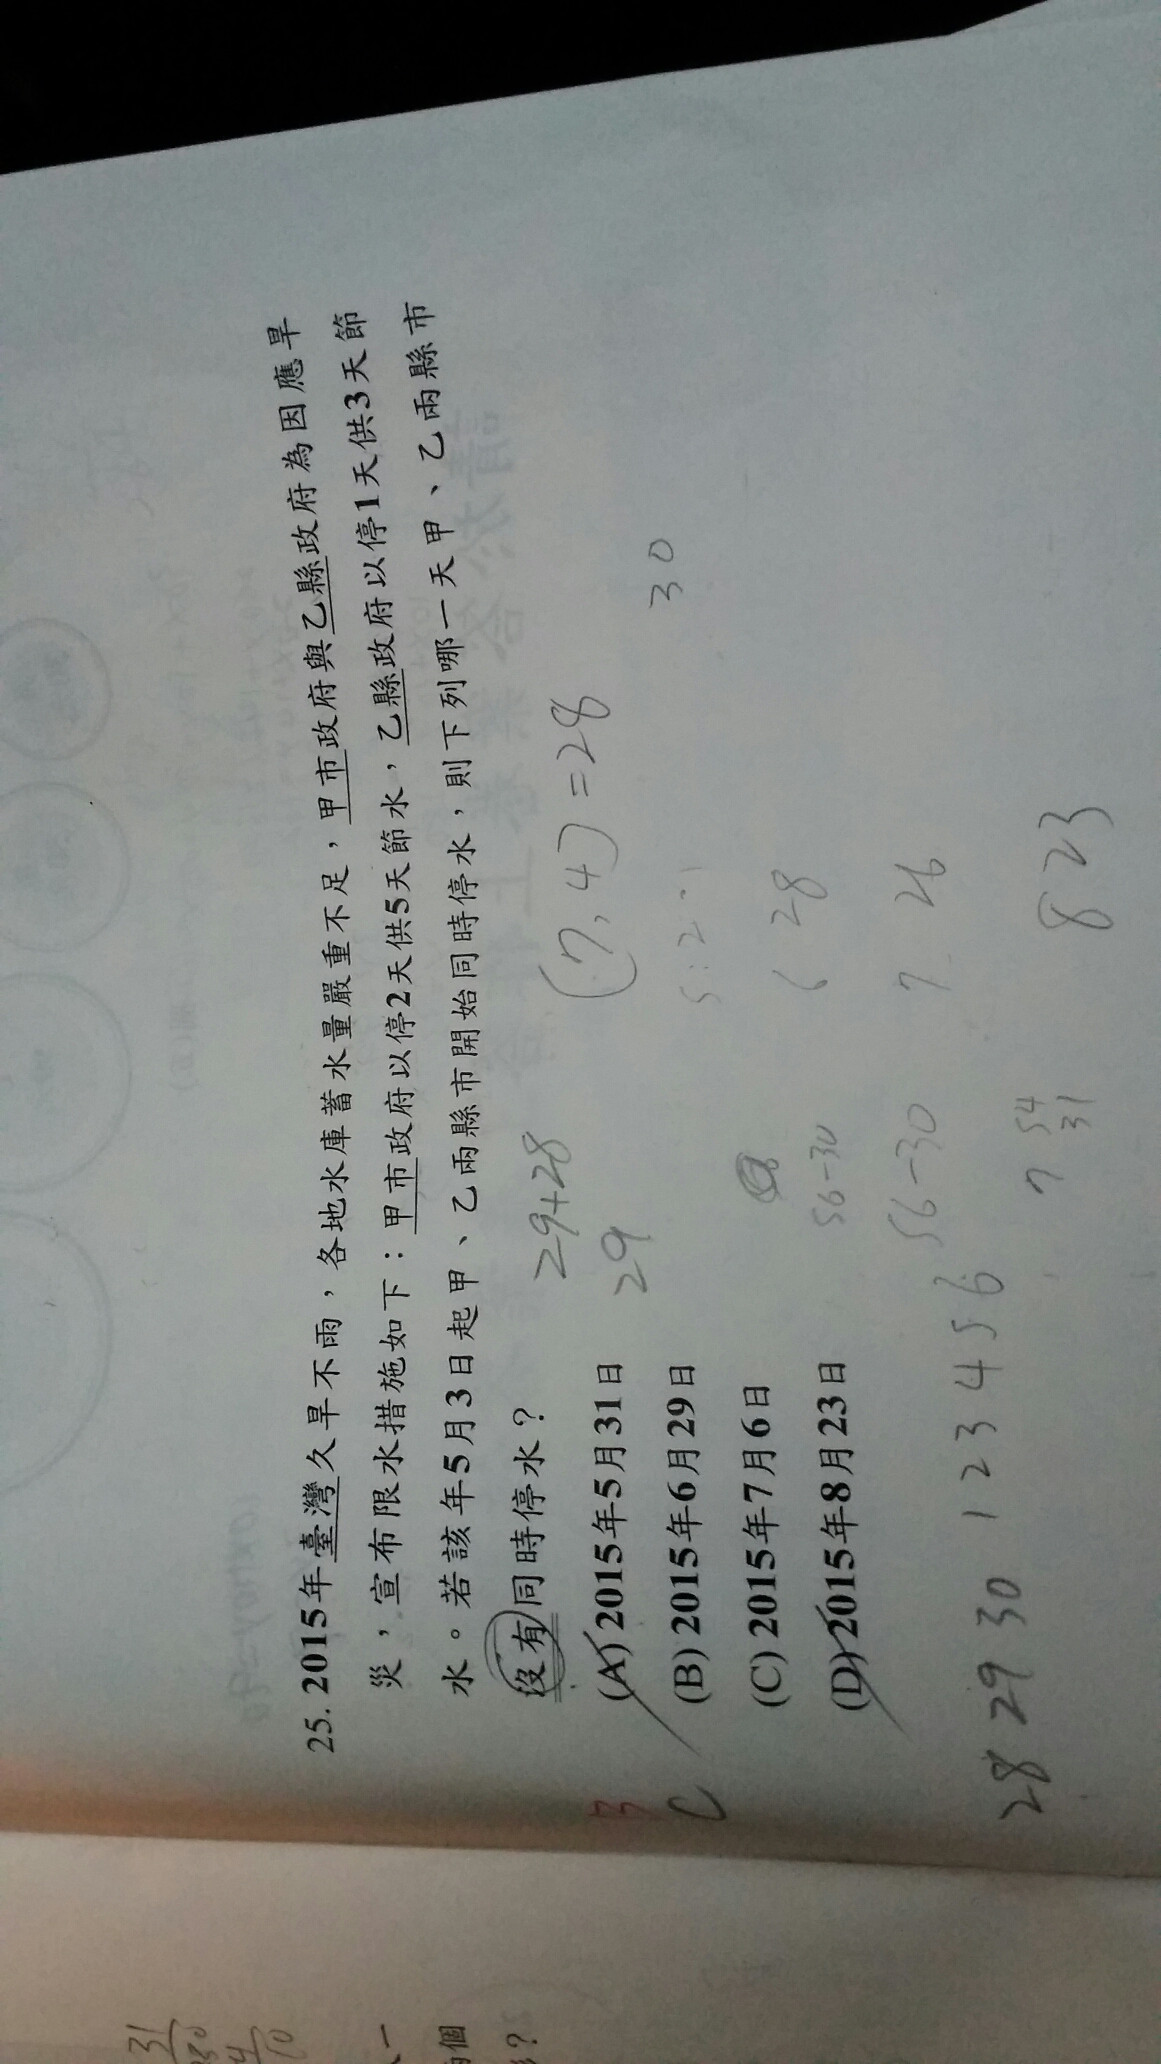 25. 2015年臺灣久旱不雨，各地水庫蓄水量嚴重不足，甲市政府與乙縣政府為因應旱
災，宣布限水措施如下：甲市政府以停2天供5天節水，乙縣政府以停1天供3天節
水。若該年5月3日起甲、乙兩縣市開始同時停水，則下列哪一天甲、乙兩縣市
沒有同時停水？
29+28
(7,4)=28
B
(A) 2015年5月31日
29
30
C
(B) 2015年6月29日
(C) 2015年7月6日
6 28
56-30
(D) 2015年8月23日
7 26
56-30
28 29 30 1 2 3 4 5 6
7 54
31
8 23
31
10
個
？